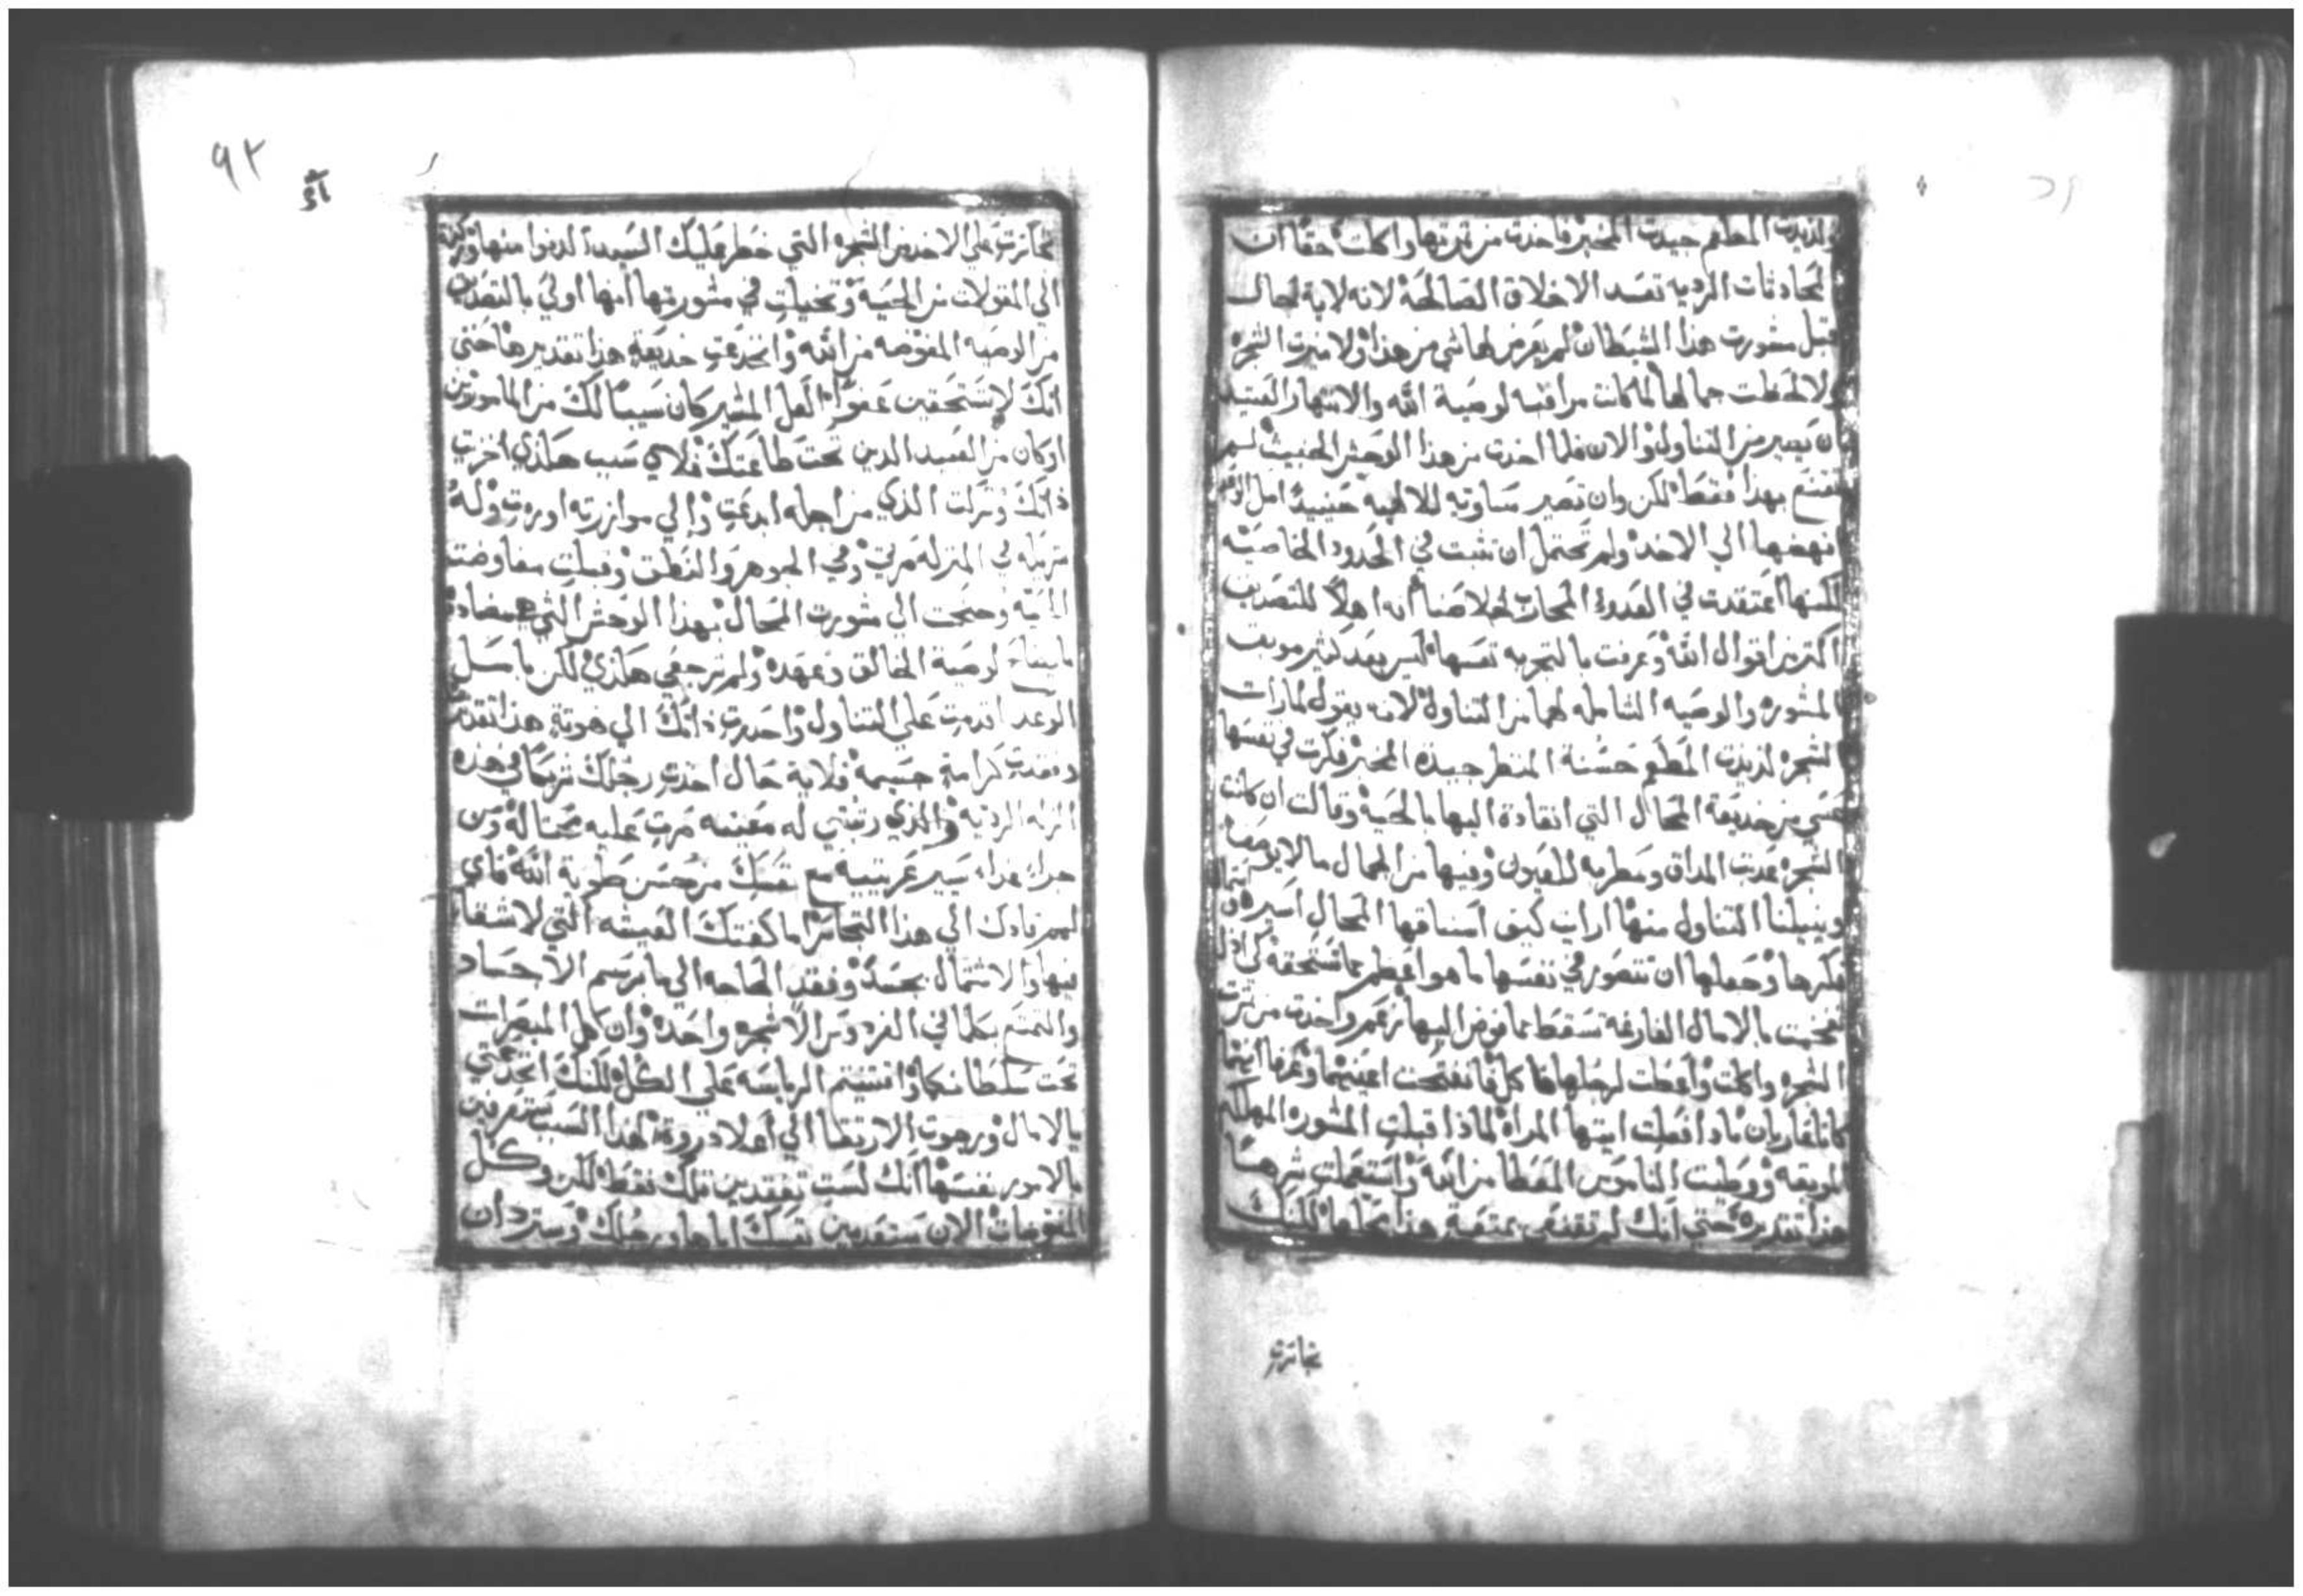 ولذيذت المطعم جيدت المخبر فاخدت من ثمرتها واكلت حقًا ان
المحادثات الرديه تفسد الاخلاق الصالحة لانه لاية لحال
قبل مشورت هذا الشيطان لم يعرض لها شي من هذا ولا ميزت الشجره
ولا لحظت جمالها لما كانت مراقبه لوصية الله والانتهار العتيد
ان يصير من التناول والان فلما اخدت من هذا الوحش الخبيث لم
تقنع بهذا فقط لكن وان تصير مساويه للالهيه حينيدً امل
انهضها الي الاخد ولم تحتمل ان تثبت في الحدود الخاصيه
لكنها اعتقدت في العدو المحارب لخلاصنا انه اهلاً للتصديق
اكتر من اقوال الله وعرفت بالتجربه نفسها ليس بعد كثير موبقت
المشوره والوصيه الشامله لهما من التناول لانه يقول لما رات
الشجره لذيذت المطعم حسنة المنظر جيدة المخبر فكرت في نفسها
عسي من خديعة المحال التي انقادة اليها بالحية وقالت ان كانت
الشجره عذبت المداق ومطربه للعيون وفيها من الجمال ما لا يوصف
وينيلنا التناول منها ارايت كيف استاقها المحال اسيره
فكرها وجعلها ان تتصور في نفسها ما هو اعظم مما تستحقه
تعجبت بالامال الفارغه تسقط مما فوض اليها نعم واخدت من ثمرت
الشجره واكلت واعطت لرجلها فاكل فانفتحت اعينهما وعرفا انهما
كانا عاريان ماذا فعلت ايتها المراه لماذا قبلت المشوره المهلكه
الموبقه ووطيت الناموس المعطا من الله واستعملت شرهًا
هذا تقديره حتي انك لم تقنعي بمتعة هذا محلها لكنك
تجاترت
٩٢
تجاترت علي الاخد من الشجره التي خطر عليك السيد الدنوا منها وركنت
الي المقولات من الحية وتخيلت في مشورتها انها اولي بالتصديق
من الوصيه المفوضه من الله وانخدعت خديعة هذا تقديرها حتي
انك لا تستحقين عفوًا لعل المشير كان سببًا لك من المامورين
او كان من العبيد الدين تحت طاعتك فلاي سبب هكذي اخزيت
ذاتك وتركت الذي من اجله ابدعت والي موازرته اوردت وله
شريكه في المنزله مرتي وفي الجوهر والنطق وقبلت مفاوضت
الحية وجنحت الي مشورت المحال بهذا الوحش التي هي مضاده
لوصية الخالق وعهده ولم ترجعي هكذي لكن
الوعد اقدمت علي التناول واحدرت ذاتك الي هوتة هذا تقديرها
وفقدت كرامة جسيمه فلاية حال اخذت رجلك شريكًا في هذه
الزله الرديه والذي رتبتي له معينه صرت عليه محتاله ومن
جرا غدا يسير غربتيه مع نفسك من حسن طوبة الله فاي
لمم قادك الي هذا التجاثر اما كفتك العيشه التي لا شقا
فيها والاشتمال بجسد وفقد الحاجه الي ما برسم الاجساد
والتمتع بكلما في الفردوس الا شجره واحده وان كل المبصرات
تحت سلطانكما واقتنيتم الرياسه علي الكل لكنك انخدعتي
بالامال ورجوت الارتقا الي اعلا دروة لهذا السبب ستعرفين
بالامور نفسها انك لست تفقدين تلك فقط لكن وكل
المفوضات الان ستعدمين نفسك اياها ورجلك وستردان